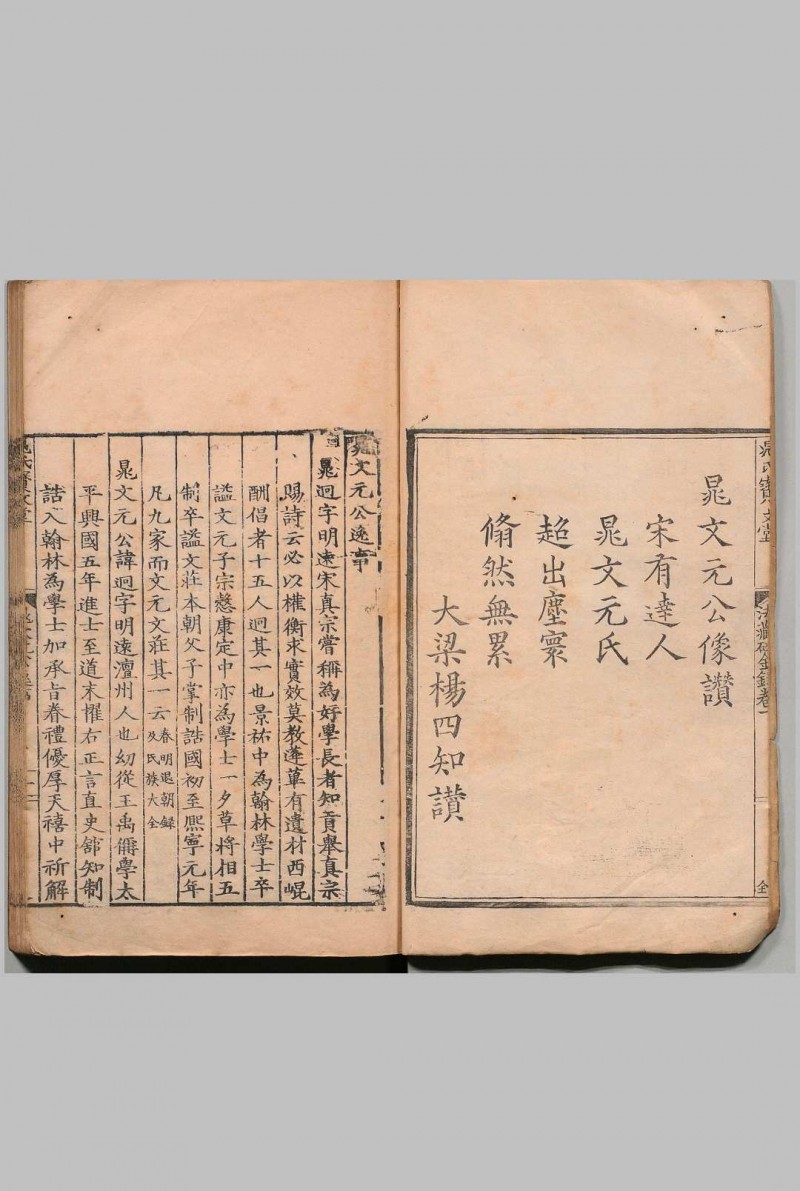 晁文元公像讃
宋有達人
晁文元氏
超出塵寰
翛然無累
大梁楊四知讃
晁文元公逸事
晁迥字明逺宋真宗嘗稱為好學長者知貢舉真宗
賜詩云必以權衡求實效莫教蓬蓽有遺材西崐
酬倡者十五人迥其一也景祐中為翰林學士卒
謚文元子宗慤康定中亦為學士一夕草將相五
制卒謚文莊本朝父子掌制誥國初至熈寧元年
凡九家而文元文莊其一云春明退朝録
及氏族大全
晁文元公諱迥字明逺澶州人也幼從王禹偁學太
平興國五年進士至道末擢右正言直史舘知制
誥入翰林為學士加承㫖眷禮優厚天禧中祈解
晁氏寳文堂
法藏碎金録卷一
全